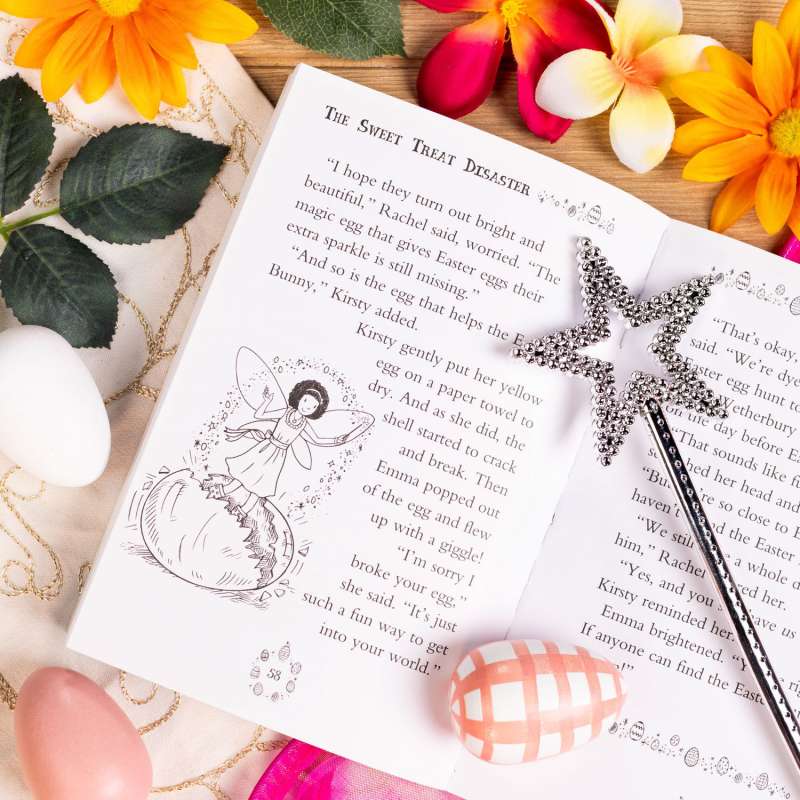 The Sweet Treat Disaster
"I hope they turn out bright and
beautiful," Rachel said, worried. "The
magic egg that gives Easter eggs their
extra sparkle is still missing."
"And so is the egg that helps the
Bunny," Kirsty added.
Kirsty gently put her yellow
egg on a paper towel to
dry. And as she did, the
shell started to crack
and break. Then
Emma popped out
of the egg and flew
up with a giggle!
"I'm sorry I
broke your egg,"
she said. "It's just
such a fun way to get
into your world."
58
"That's okay,
said. "We're
Easter egg hunt to
Wetherbury
on the day before
"That sounds like
her head and
"But so close to
haven't the Easter
"We a whole
him," Rachel her.
"Yes, and you us
Kirsty reminded her.
Emma brightened.
If anyone can find the